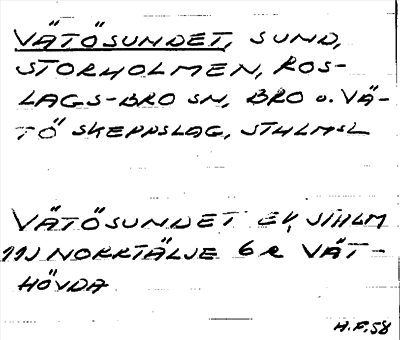 VÄTÖSUNDET, SUND,
STORHOLMEN, ROS-
LAGS-BRO SN, BRO o. VÄ-
TÖ SKEPPSLAG, STHLMSL
VÄTÖSUNDET EK, STHLM
11J NORRTÄLJE 6 R VÄT-
HÖVDA
H.F.58